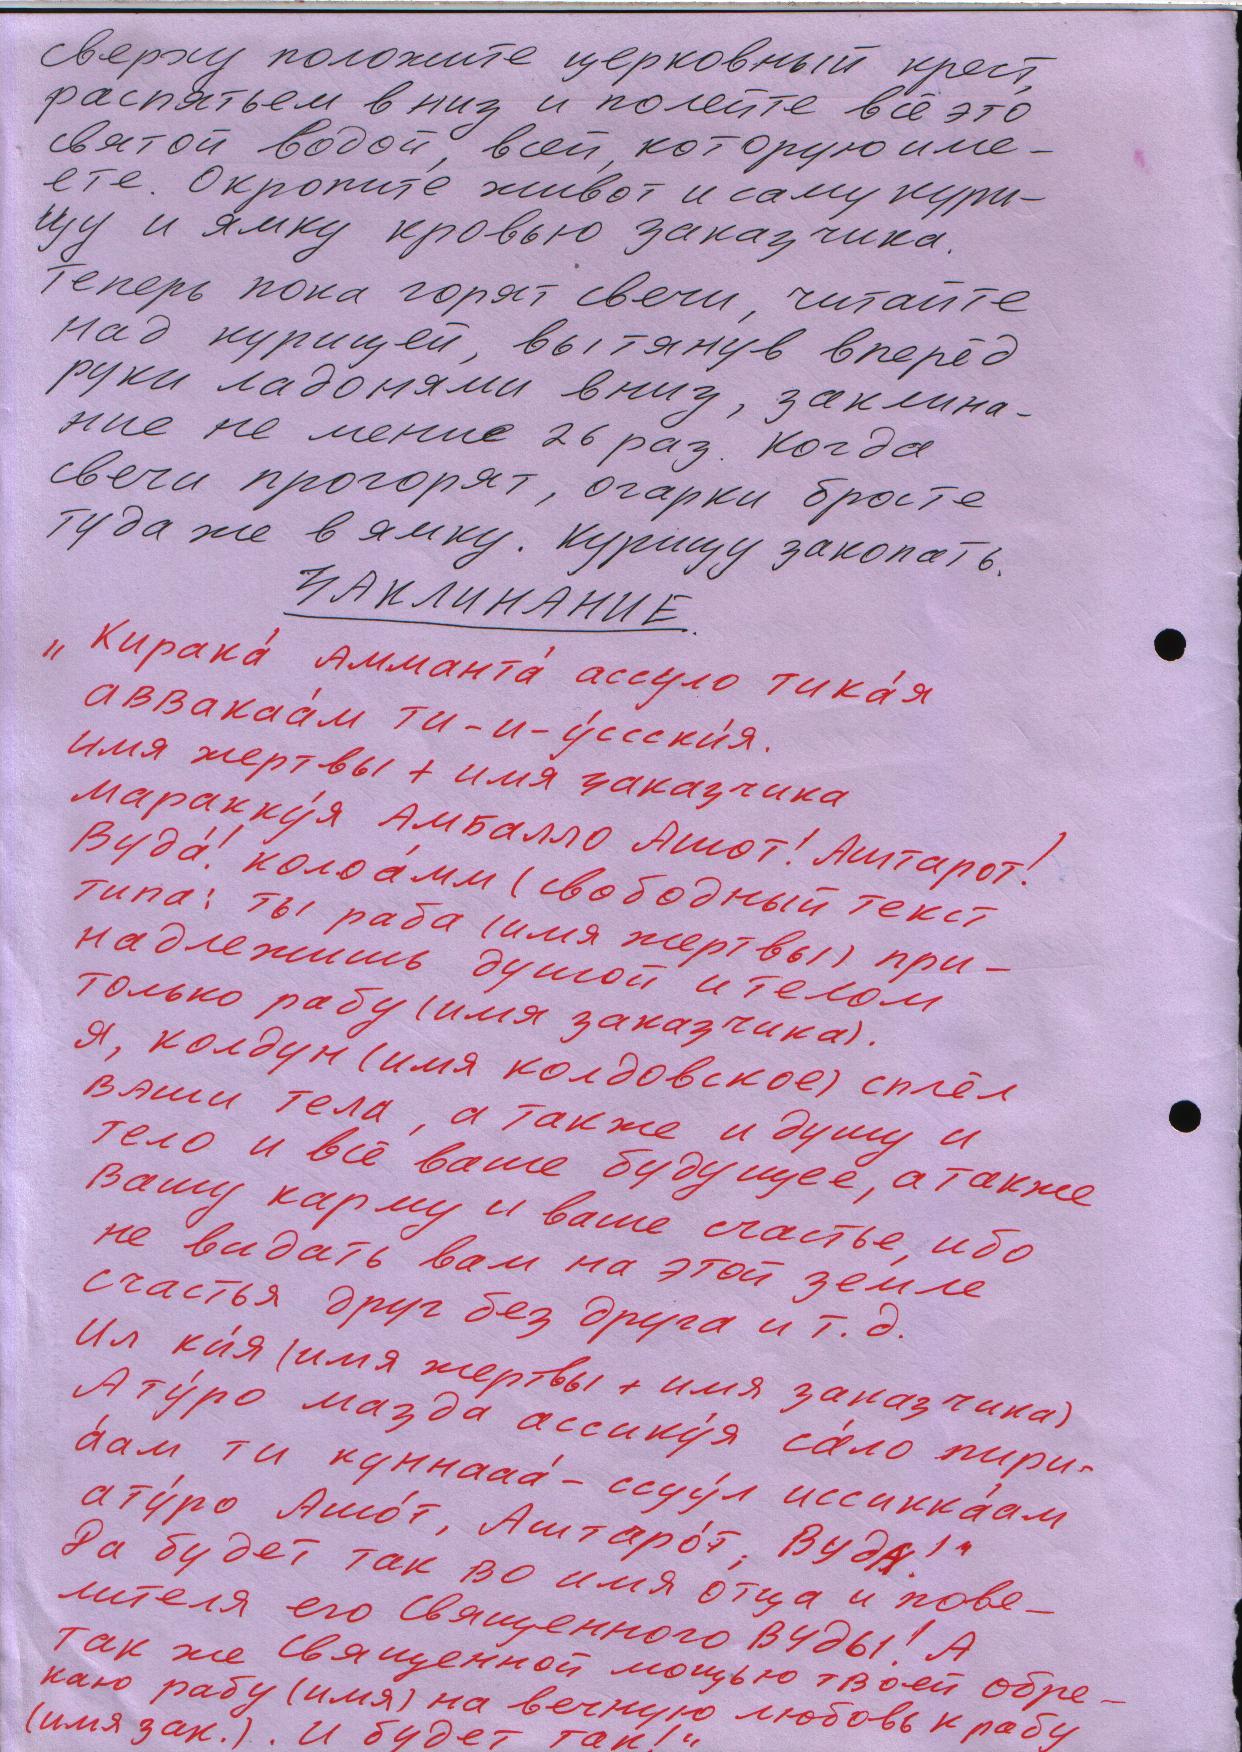 сверху положите церковный крест,
распятьем в низ и полейте всё это
святой водой, всей, которую име-
ете. Окропите живот и саму кури-
цу и ямку кровью заказчика.
Теперь пока горят свечи, читайте
над курицей, вытянув вперёд
руки ладонями вниз, заклина-
ние не менис 26 раз. Когда
свечи прогорят, огарки бросте
туда же в ямку. Курицу закопать.
ЗАКЛИНАНИЕ.
„ Кирака́ Амманта́ ассуло тика́я
авваkаáм ти-и-у́ссски́я.
имя жертвы + имя заказчика
маракку́я Амбалло Ашот! Аштарот!
Вуда́! колоа́мм (свободный текст
типа: ты раба (имя жертвы) при-
надлежишь душой и телом
только рабу (имя заказчика).
Я, колдун (имя колдовское) сплёл
ваши тела, а также и душу и
тело и всё ваше будущее, а также
Вашу карму и ваше счастье, ибо
не видать вам на этой земле
счастья друг без друга и т.д.
Ил ки́я (имя жертвы + имя заказчика)
Ату́ро мазда ассику́я са́ло пири-
а́ам ти куннааа́-ссуу́л иссикка́ам
ату́ро Ашо́т, Аштаро́т, ВудА!"
Да будет так во имя отца и пове-
лителя его Священного Вуды! А
так же священной мощью твоей обре-
каю рабу (имя) на вечную любовь к рабу
(имя зак.). И будет так!"